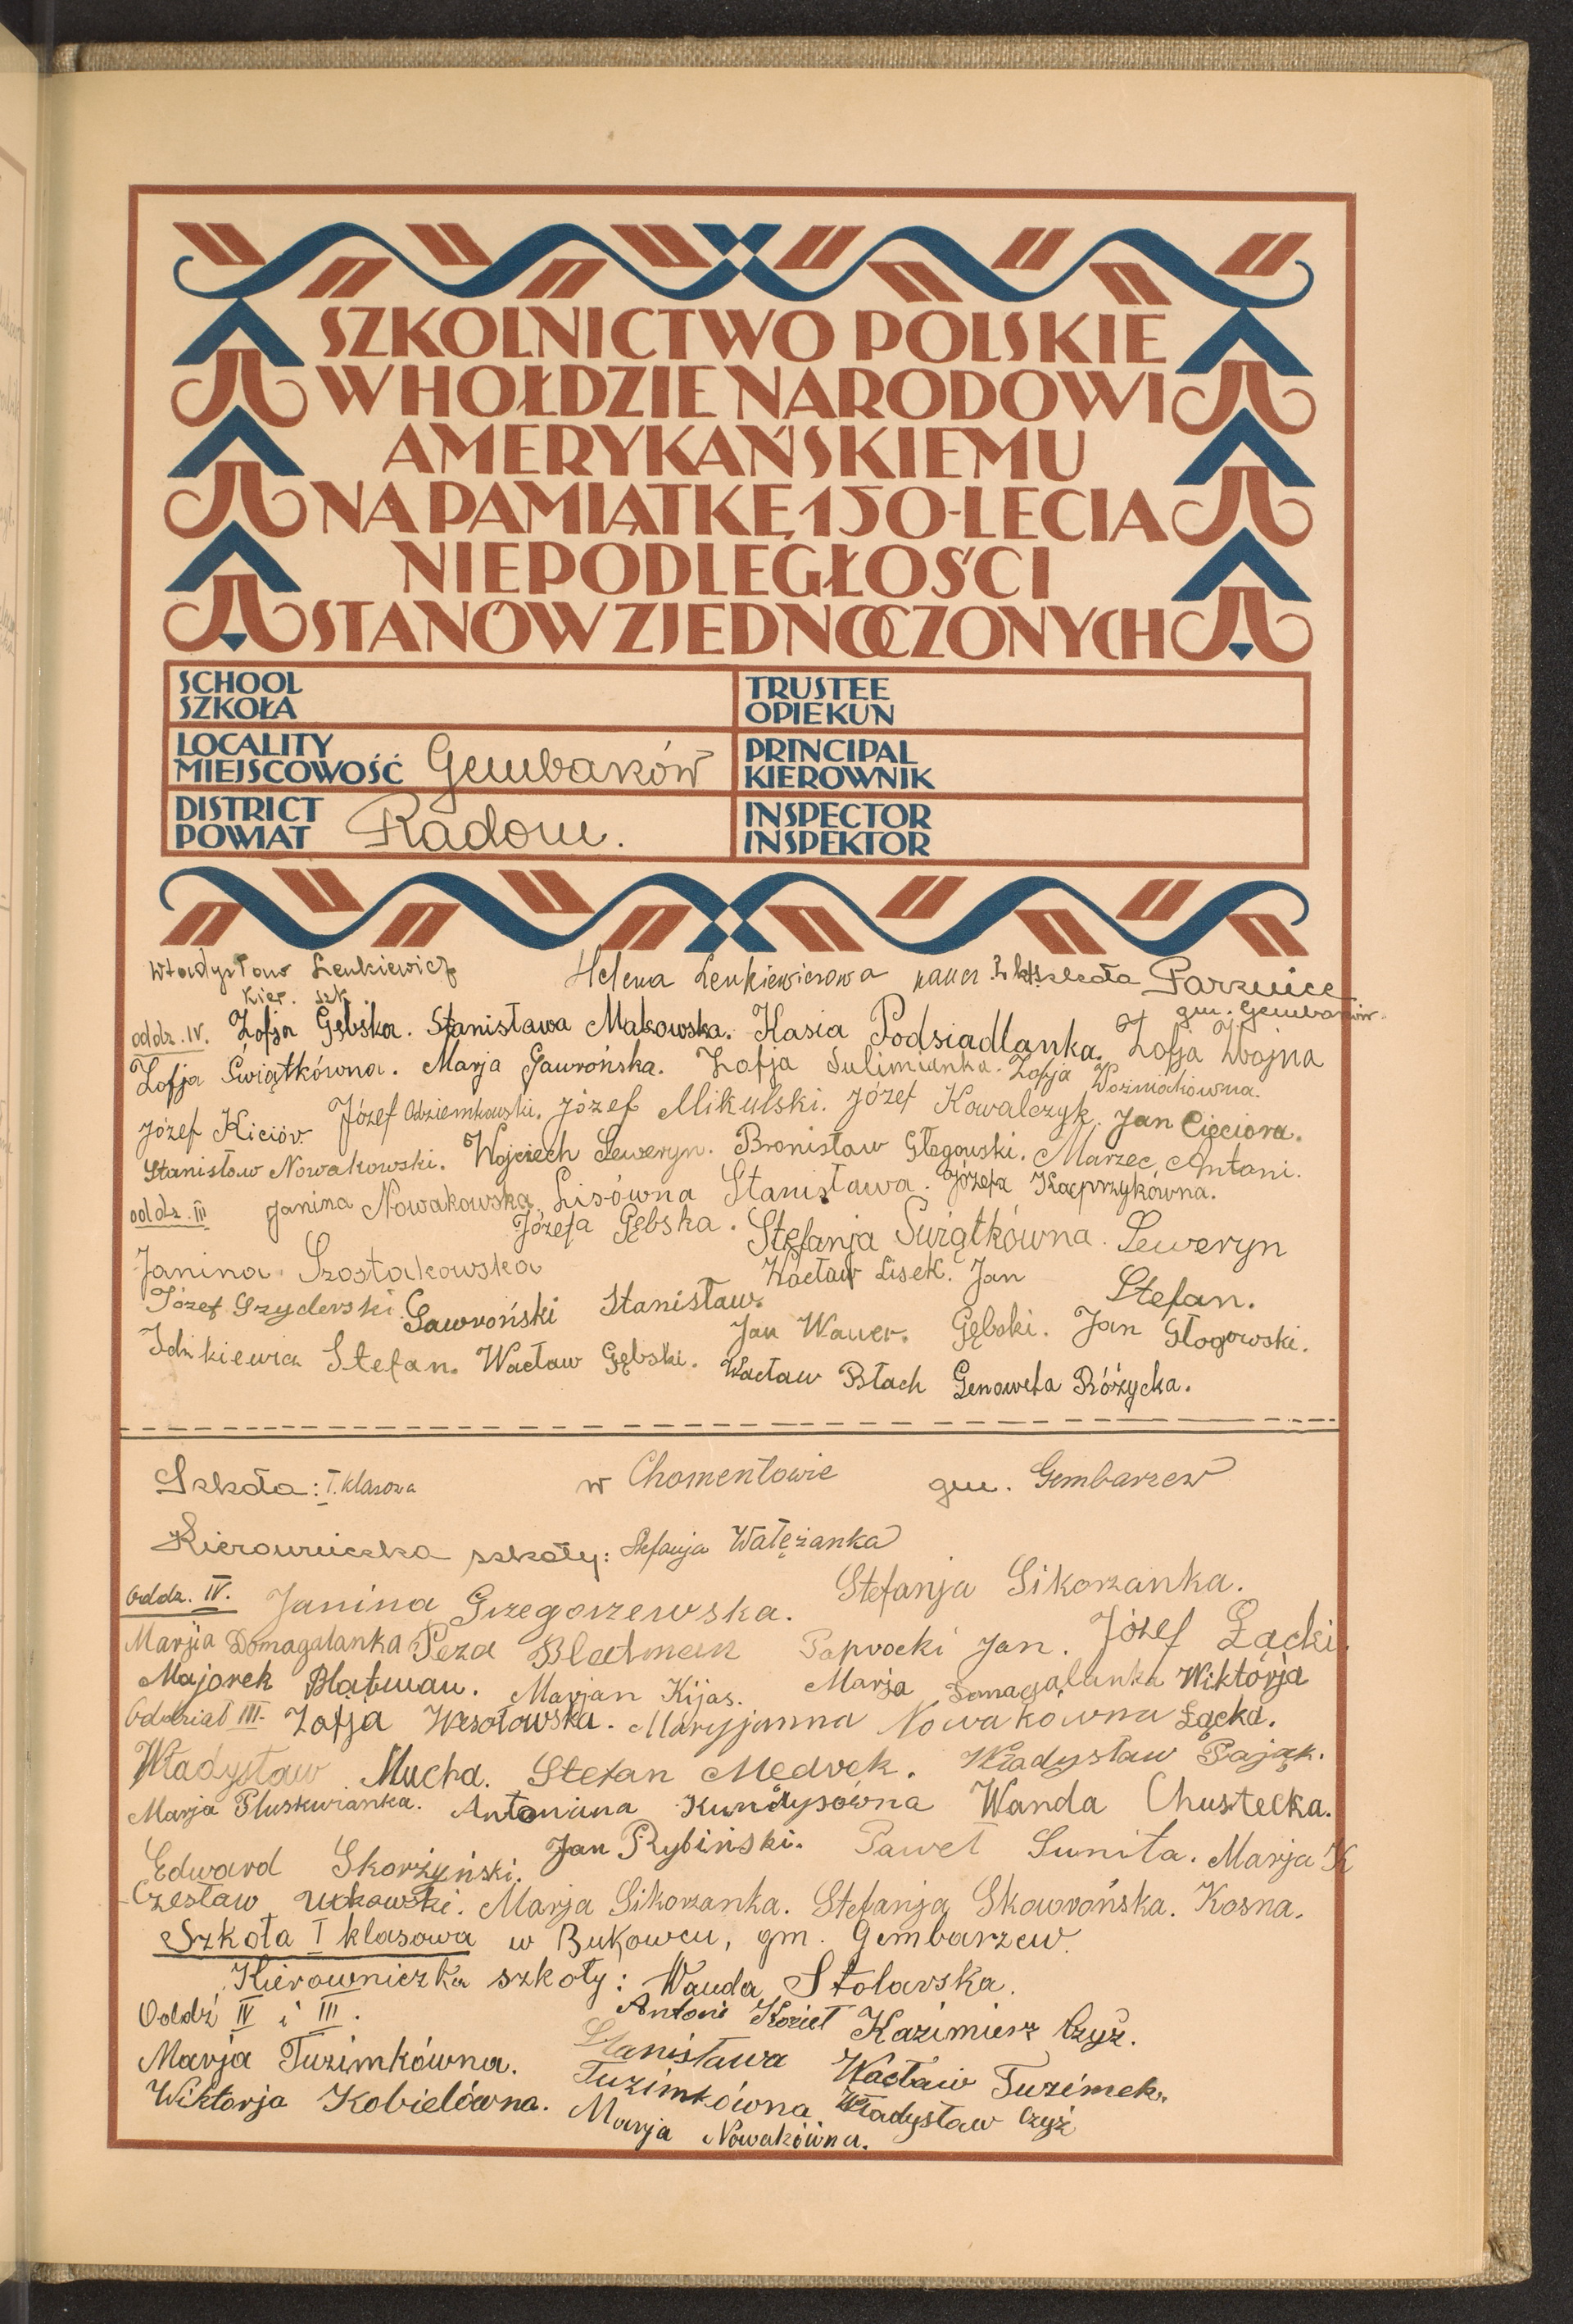 SZKOLNICTWO POLSKIE
W HOŁDZIE NARODOWI
AMERYKAŃSKIEMU
NA PAMIĄTKĘ 150-LECIA
NIEPODLEGŁOŚCI
STANÓW ZJEDNOCZONYCH
SCHOOL
SZKOŁA
TRUSTEE
OPIEKUN
LOCALITY
MIEJSCOWOŚĆ Gembarzów
PRINCIPAL
KIEROWNIK
DISTRICT
POWIAT Radom.
INSPECTOR
INSPEKTOR
Władysław Lenkiewicz Helena Lenkiewiczowa nauci 2 kl. szkoła Parznice
kier. szk. gm. Gembarzów.
oddz. IV. Zofja Gębska. Stanisława Makowska. Kasia Podsiadlanka. Zofja Wojna
Zofja Świątkówna. Marja Gawrońska. Zofja Sulimianka. Zofja Woźniakówna.
Józef Kiciór. Józef Odziemkowski. Józef Mikulski. Józef Kowalczyk. Jan Cięciora.
Stanisław Nowakowski. Wojciech Seweryn. Bronisław Głogowski. Marzec Antoni.
oddz. III Janina Nowakowska. Lisówna Stanisława. Józefa Kacprzykówna.
Józefa Gębska. Stefanja Świątkówna. Seweryn
Janina Szostakowska Wacław Lisek. Jan Stefan.
Józef Grzyderski. Gawroński Stanisław.
Jan Wauer. Gębski. Jan Głogowski.
Idzikiewicz Stefan. Wacław Gębski. Wacław Błach Genowefa Różycka.
Szkoła: I. klasowa w Chomentowie gm. Gembarzew
Kierowniczka szkoły: Stefanja Wałęzanka
Oddz. IV. Janina Grzegorzewska. Stefanja Sikorzanka.
Marjia Domagalanka Peza Blatman Paprocki Jan. Józef Łącki.
Majorek Blatman. Marjan Kijas. Marja Domagalanka Wiktorja
Oddział III. Zofja Wesołowska. Maryjanna Nowakówna Łącka.
Władysław Mucha. Stefan Mędrek. Władysław Pająk.
Marja Pluskwianka. Antonina Kundysówna Wanda Chustecka.
Edward Skorżyński. Jan Rybiński. Paweł Sunita. Marja K
Czesław. Marja Sikorzanka. Stefanja Skowrońska. Kosna.
Szkoła I klasowa w Bukowcu, gm. Gembarzew.
Kierowniczka szkoły: Wanda Stolarska.
Oddz IV i III. Antoni Kozieł Kazimierz Czyż.
Marja Tuzimkówna. Stanisława Wacław Tuzimek.
Wiktorja Kobielówna. Tuzimkówna Władysław Czyż
Marja Nowakówna.